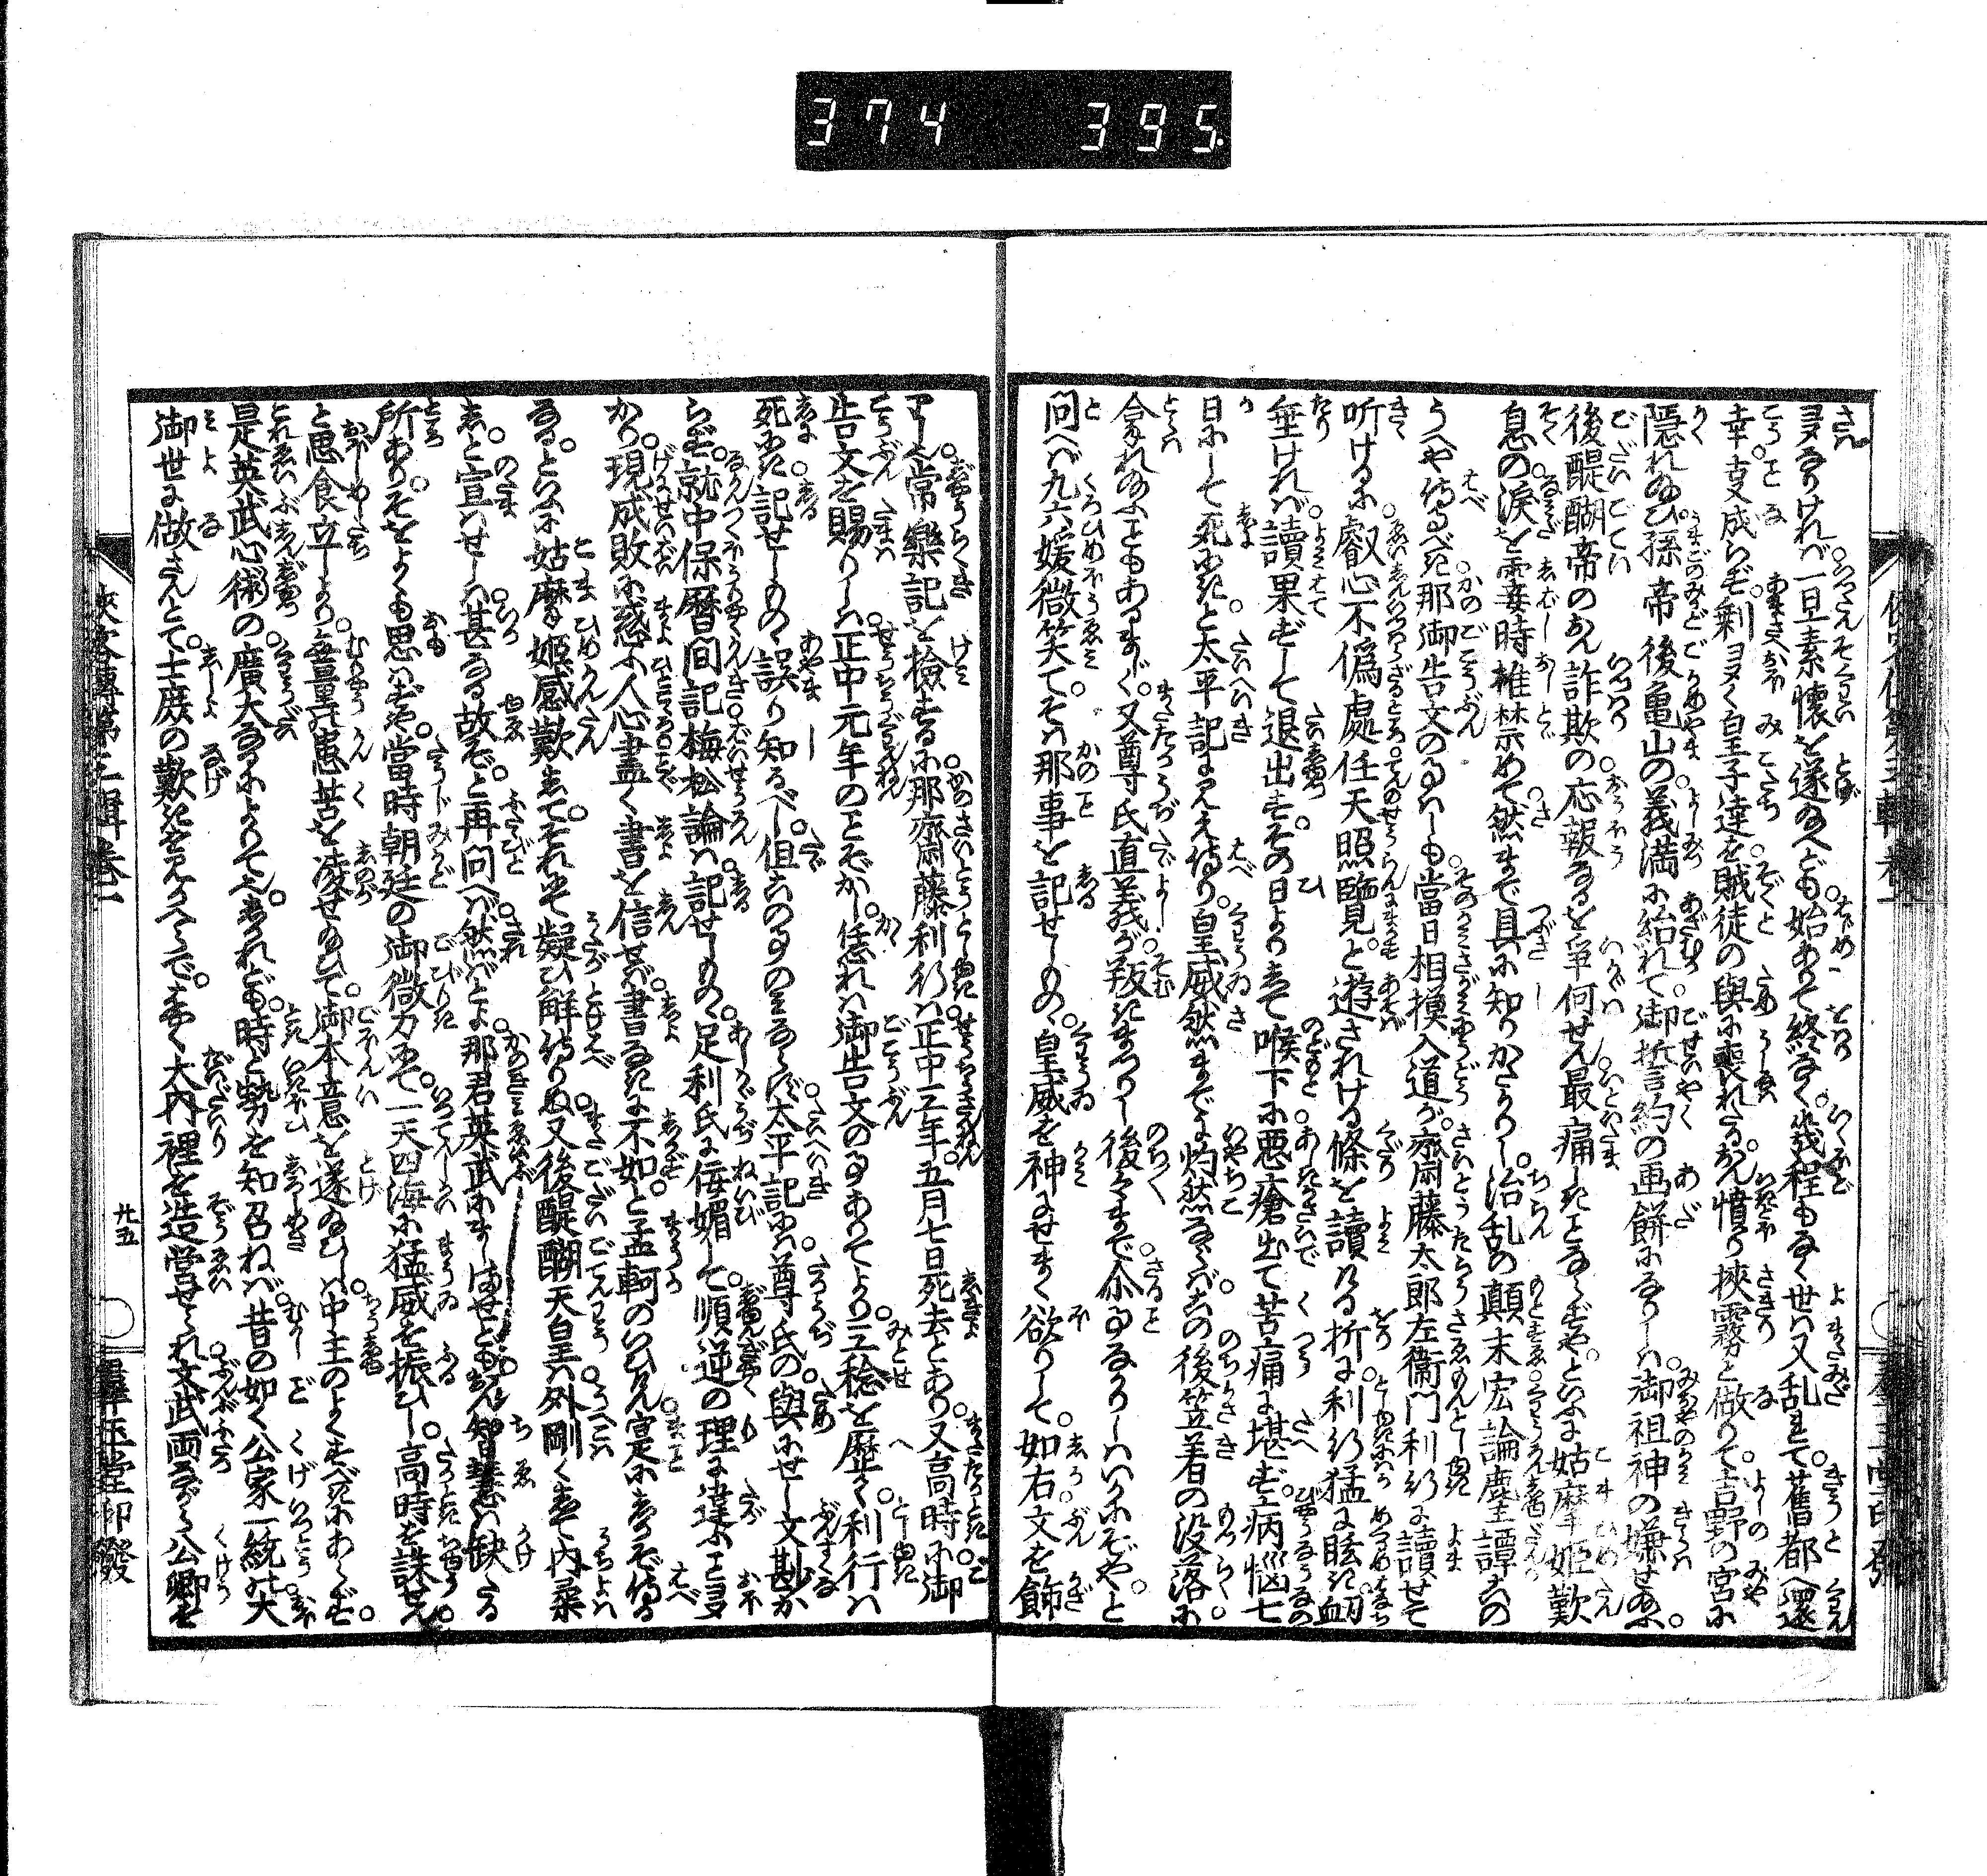 374 395
ヨヌなりければ一旦素懷を遂給へども始ありて終なく幾程もなく世は又乱れて舊都へ還
幸の事成らず剰ヨヌく皇子達を賊徒の與に喪れたるおん憤り挾霧と做りて吉野の宮に
隱れ給ひ孫帝後亀山の義満に紿れて御誓約の画餅になりしは御祖神の嫌せ給ふ
後醍醐帝のおん詐欺の応報なるを争何せん最痛しきことならずやといふに姑摩姫歎
息の涙を霎時推禁めて然まで具に知りがたかりし治乱の顛末宏論塵譚この
うへや侍るべき那御告文の事はしも當日相摸入道が齋藤太郎左衞門利行に讀せて
听けるに叡心不偽處任天照覽と遊されける條を讀ける折に利行猛に眩き衂
垂ければ讀果ずして退出すその日よりして喉下に悪瘡出て苦痛に堪ず病惱七
日にして死にきと太平記に見え侍り皇威然までに灼然ならばこの後笠着の没落に
拿れ給ふこともあるまじく又尊氏直義が叛きまつりし後々まで介る事なかりしはいかにぞやと
問へば九六媛微笑てそは那事を記せしもの皇威を神にせまく欲りして如右文を飾
りし也常樂記を檢するに那齋藤利行は正中三年五月七日死去とあり又高時に御
告文を賜りしは正中元年のことぞかし恁れば御告文の事ありてより三稔を歴て利行は
死にき記せしものゝ誤り知るべし但この事のみならず太平記には尊氏の與にせし文勘か
らず就中保暦間記梅松論は記せしものゝ足利氏に佞媚して順逆の理に違ふこと多
かり現成敗に惑ふ人心盡く書を信せば書なきに不如と孟軻のいひけん寔に然ぞ侍る
なるといふに姑摩姫感歎してそれにて疑ひ解侍りぬ又後醍醐天皇は外剛くして内柔
しと宣はせしは甚なる故ぞと再問へば然ばとよ那君英武にましませどもおん智慧は缺たる
所ありそをよくも思はずや當時朝廷の御微力にて一天四海に猛威を振ひし高時を誅せん
と思食立しより無量の患苦を凌せ給ひて御本意を遂給ひしは中主のよくすべきにあらず
是英武心術の廣大なるによりて也しかれども時と勢を知召ねば昔の如く公家一統の大
御世に做さんとて士庶の歎きを見かへらで忙く大内裡を造営せられ文武両ながら公卿を
侠客傳第三輯巻一
廿五
群玉堂印發